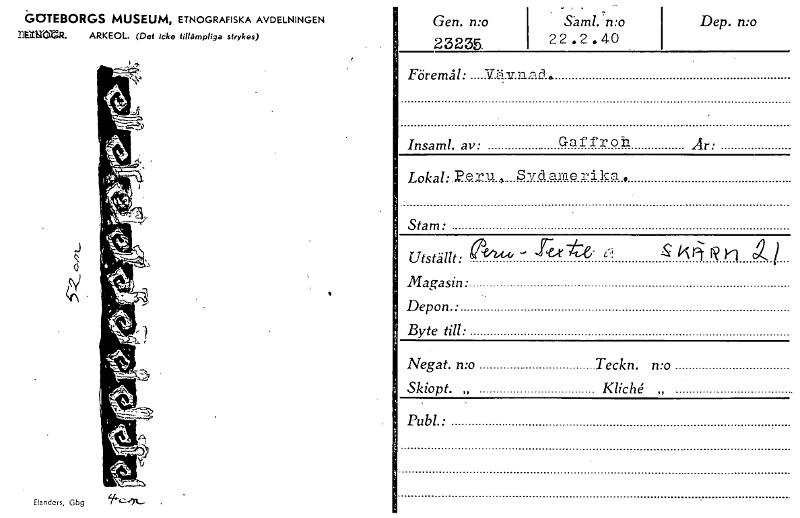 GÖTEBORGS MUSEUM, ETNOGRAFISKA AVDELNINGEN
ETNOGR. ARKEOL. (Det icke tillämpliga strykes)
52 cm
4 cm
Elanders, Gbg
Gen. n:o Saml. n:o Dep. n:o
23235 22.2.40
Föremål: Vävnad.
Insaml. av: Gaffron År:
Lokal: Peru, Sydamerika.
Stam:
Utställt: Peru-Textil a SKÄRM 21
Magasin:
Depon.:
Byte till:
Negat. n:o Teckn. n:o
Skiopt. „ Kliché „
Publ.: